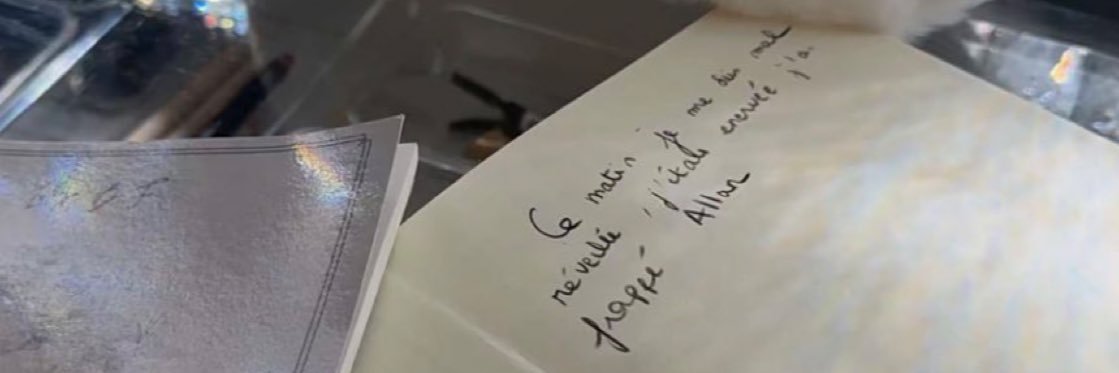 Ce matin je me suis mal
réveillée j'étais enervée j'ai
frappé Allan